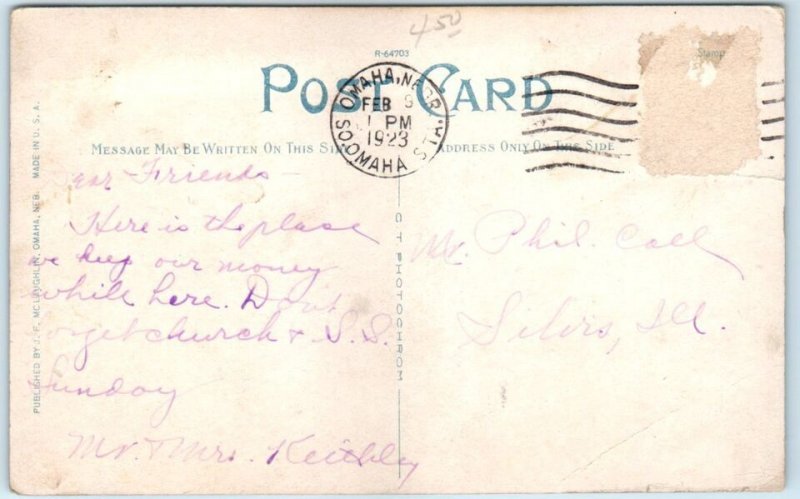 4.50
R-64703
POST CARD
Stamp
OMAHA, NEBR.
FEB 9
1 PM
1923
SO. OMAHA STA.
MESSAGE MAY BE WRITTEN ON THIS SIDE
ADDRESS ONLY ON THIS SIDE
PUBLISHED BY J. F. MCLAUGHLIN, OMAHA, NEB. MADE IN U. S. A.
C T PHOTOCHROM
Dear Friends
Here is the place
we keep our money
while here. Don't
forget church & S.S.
Sunday
Mr. & Mrs. Keithley
Mr. Phil. Call
Silvis, Ill.